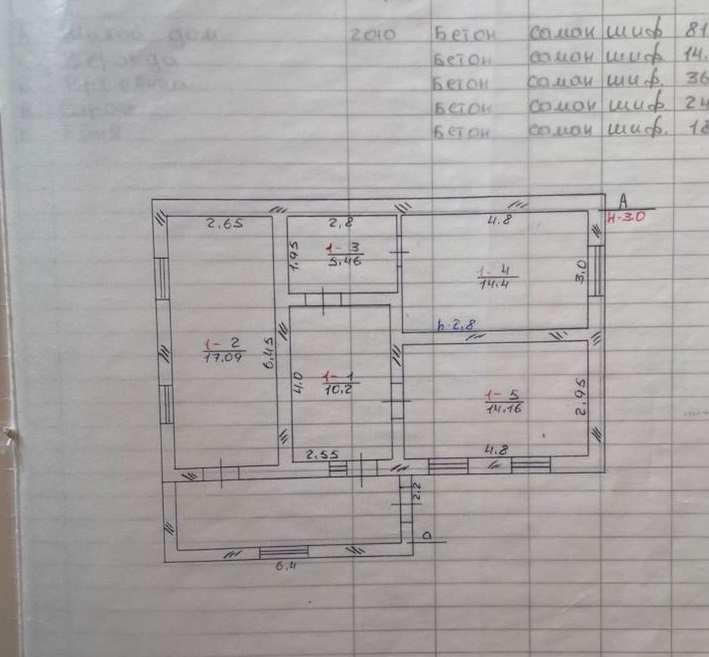 Жилой дом 2010 Бетон саман шиф 81
Бетон саман шиф. 14.
Бетон саман шиф. 36
Бетон саман шиф. 24
Бетон саман шиф. 18
А
H-3.0
2.65 2.8 4.8
1.95 1-3
5.46
1-4
14.4
3.0
h-2.8
1-2
17.09
6.45
4.0 1-1
10.2
1-5
14.16
2.95
2.55 4.8
2.2
а
6.4